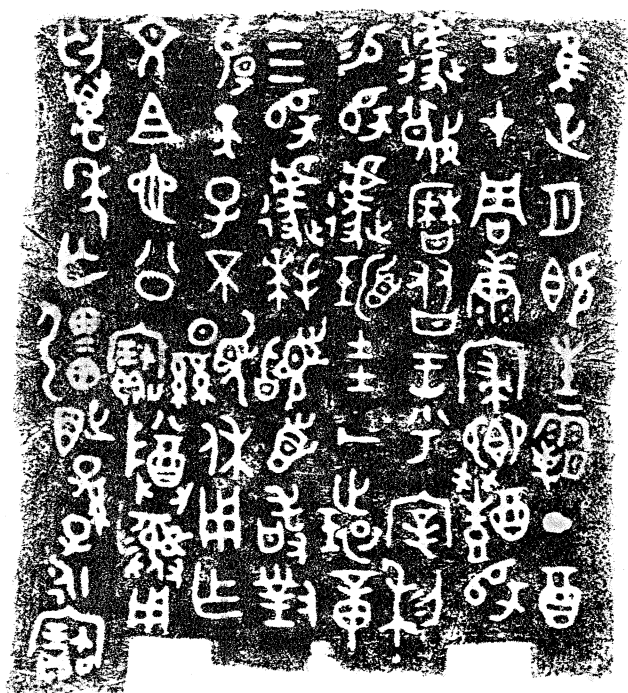 隹正月既生霸丁酉
王才周康寑鄉醴師
遽蔑曆㕛王乎宰利
易師遽𤦲圭一環章
四師遽拜𩒨首敢對
揚天子不顯休用乍
文且也公寶尊彝用
匄萬年亡彊百世孫子永寶